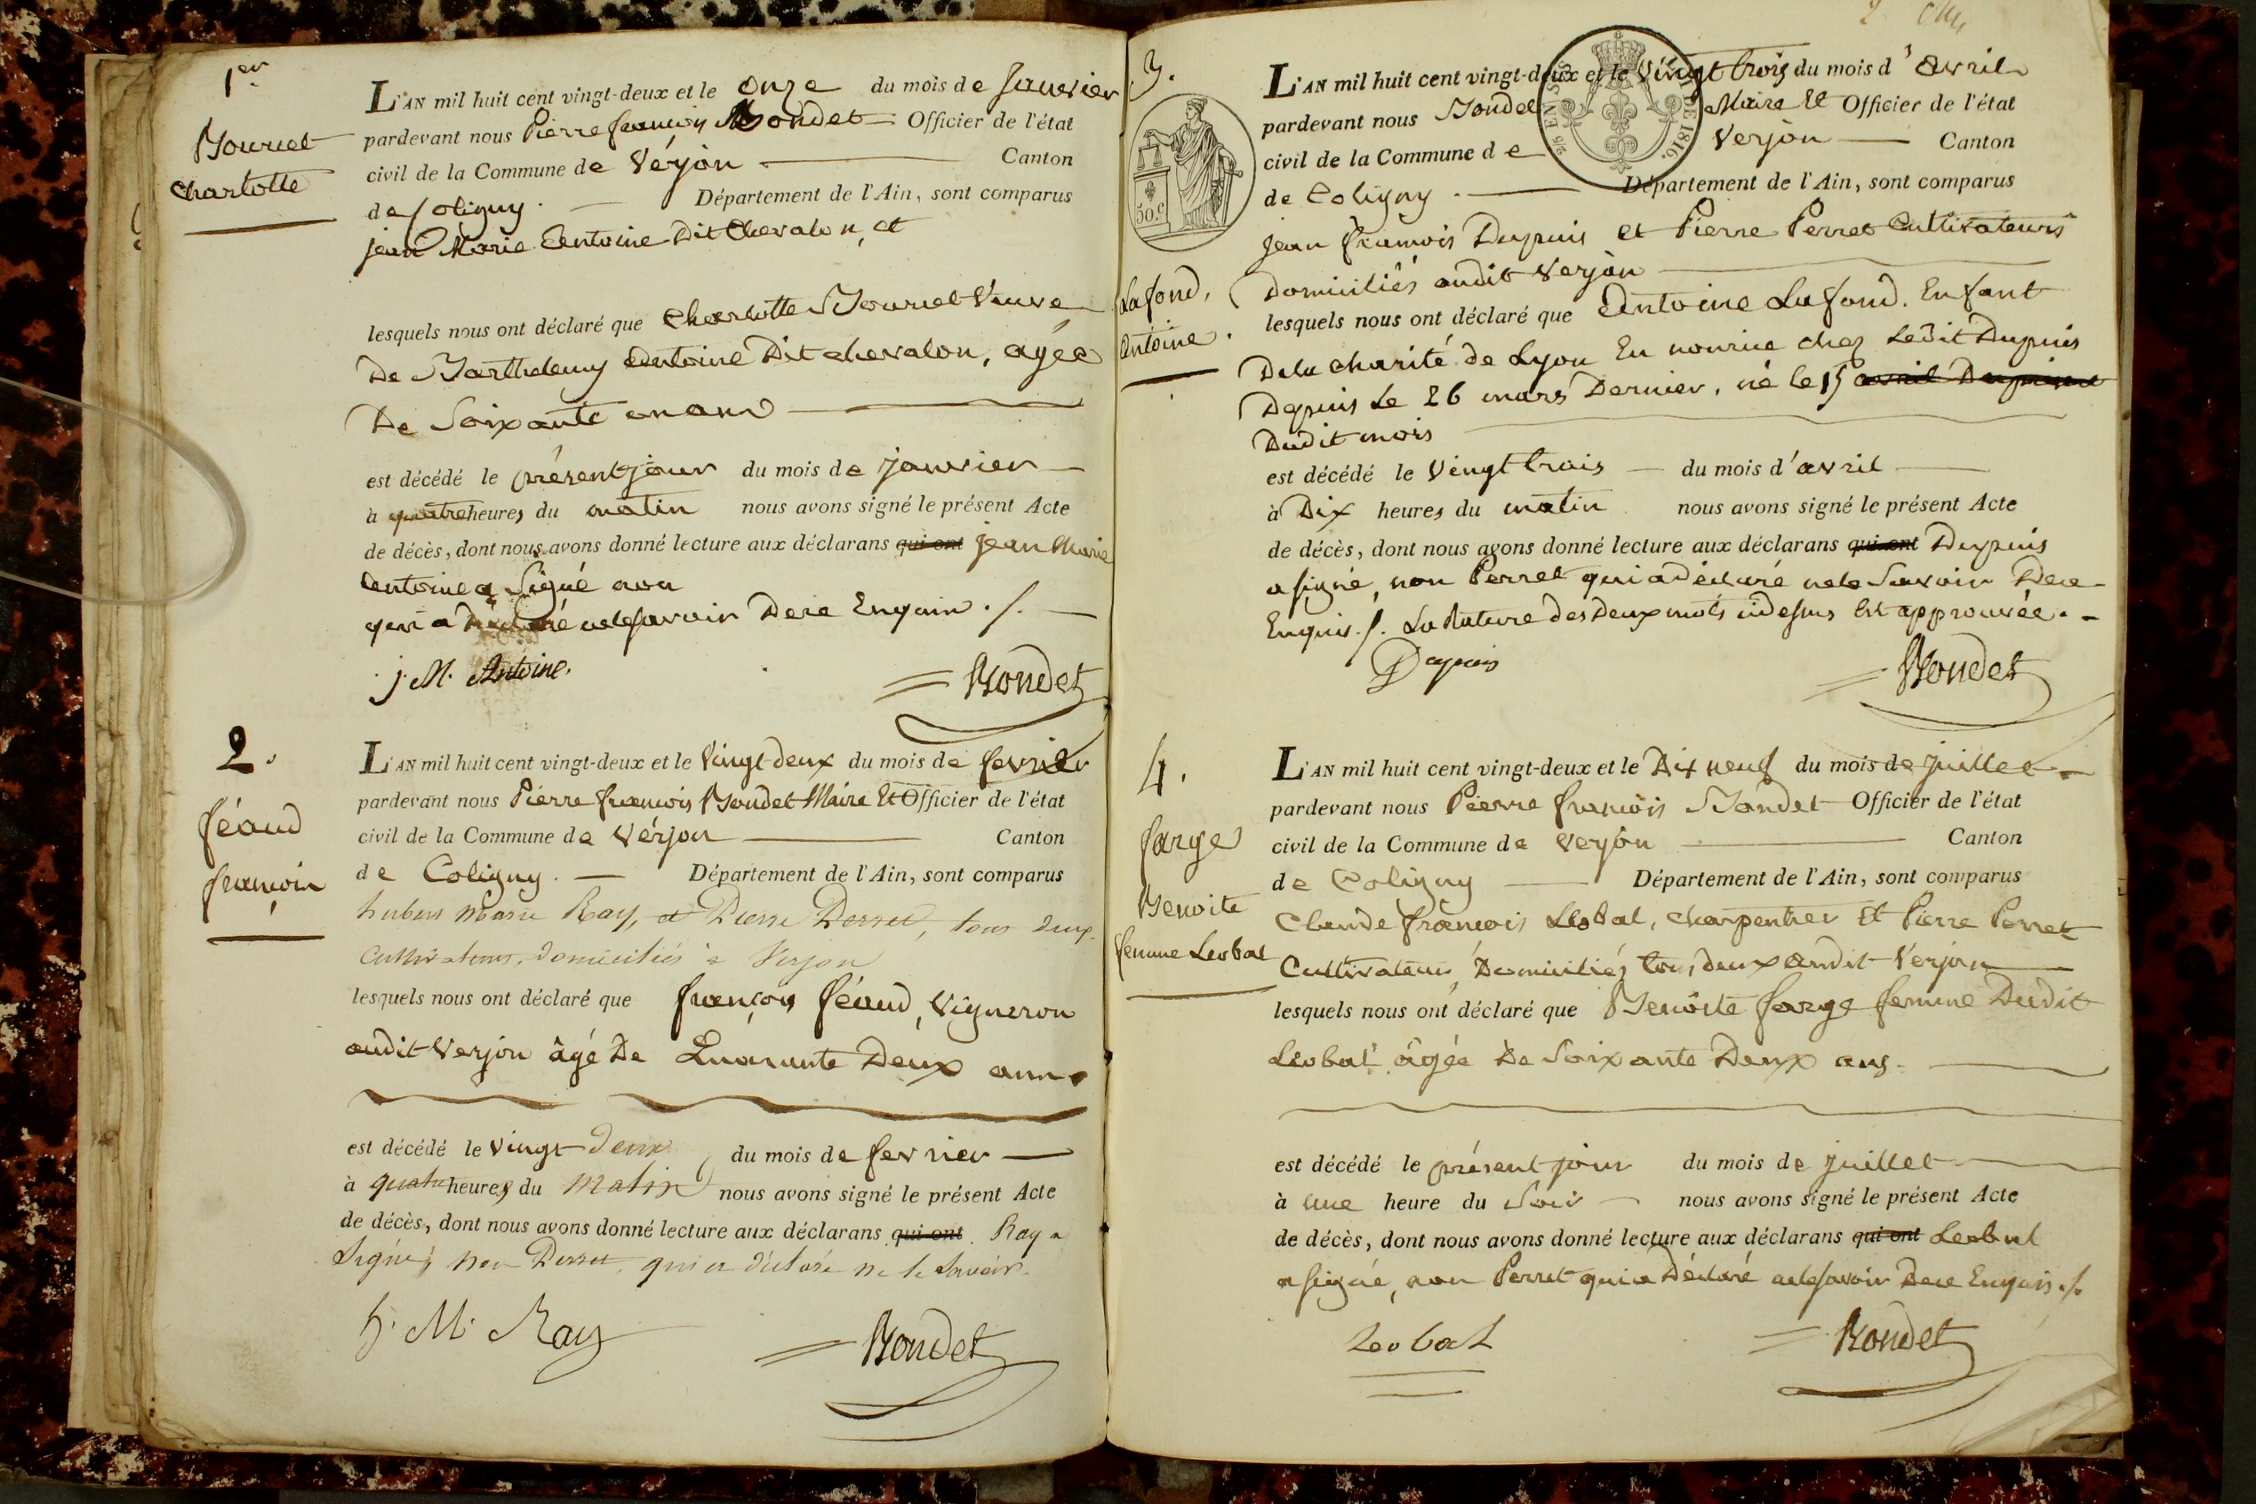 1er
Bouruet
Charlotte
L'AN mil huit cent vingt-deux et le onze du mois de Janvier
pardevant nous Pierre françois Bondet Officier de l'état
civil de la Commune de Verjon Canton
de Coligny. Département de l'Ain, sont comparus
jean Marie Antoine Dit Chevalon, et
lesquels nous ont déclaré que Charlotte Bouruet Veuve
De Barthelemy Antoine Dit chevalon, agée
De Soixante
est décédé le présent jour du mois de janvier
à quatre heures du matin nous avons signé le présent Acte
de décès, dont nous avons donné lecture aux déclarans qui ont jean Marie
Antoine a Signé non
qui a Déclaré ne le savoir De ce Enquis ./.
j. M. Antoine.
Bondet
2.
féaud
françois
L'AN mil huit cent vingt-deux et le Vingt-deux du mois de fevrier
pardevant nous Pierre françois Bondet Maire Et Officier de l'état
civil de la Commune de Verjon Canton
de Coligny. Département de l'Ain, sont comparus
hubert Marie Ray, et Pierre Perret, tous deux
Cultivateurs, domiciliés à Verjon
lesquels nous ont déclaré que françois féaud, Vigneron
audit Verjon âgé De Quarante Deux ans
est décédé le Vingt deux du mois de fevrier
à quatre heures du Matin nous avons signé le présent Acte
de décès, dont nous avons donné lecture aux déclarans qui ont Ray a
Signé, non Perret, qui a déclaré ne le Savoir.
h. M. Ray
Bondet
3.
50.C
Lafond,
Antoine.
L'AN mil huit cent vingt-deux et le Vingt trois du mois d'avril
pardevant nous Bondet Maire Et Officier de l'état
civil de la Commune de Verjon Canton
de Coligny. Département de l'Ain, sont comparus
DE 1816.
jean françois Dupuis et Pierre Perret Cultivateurs
Domiciliés audit Verjon
lesquels nous ont déclaré que Antoine Lafond. Enfant
De la charité de Lyon En nourice chez Ledit Dupuis
Depuis Le 26 mars Dernier, né le 15 avril
Dudit mois
est décédé le Vingt trois du mois d'avril
à Dix heures du matin nous avons signé le présent Acte
de décès, dont nous avons donné lecture aux déclarans qui ont Dupuis
a signé, non Perret qui a déclaré ne le Savoir De ce
Enquis ./. La Rature des Deux mots cidessus Est approuvée.
Dupuis
Bondet
4.
farge
Benoite
femme Leobal
L'AN mil huit cent vingt-deux et le Dix neuf du mois de juillet
pardevant nous Pierre françois Bondet Officier de l'état
civil de la Commune de Verjon Canton
de Coligny Département de l'Ain, sont comparus
Claude françois Leobal, charpentier Et Pierre Perret
Cultivateur, Domiciliés tous deux audit Verjon
lesquels nous ont déclaré que Benoite farge femme Dudit
Leobal âgée De Soixante Deux ans.
est décédé le présent jour du mois de juillet
à une heure du Soir nous avons signé le présent Acte
de décès, dont nous avons donné lecture aux déclarans qui ont Leobal
a signé, non Perret qui a Déclaré ne le savoir De ce Enquis ./.
Leobal
Bondet